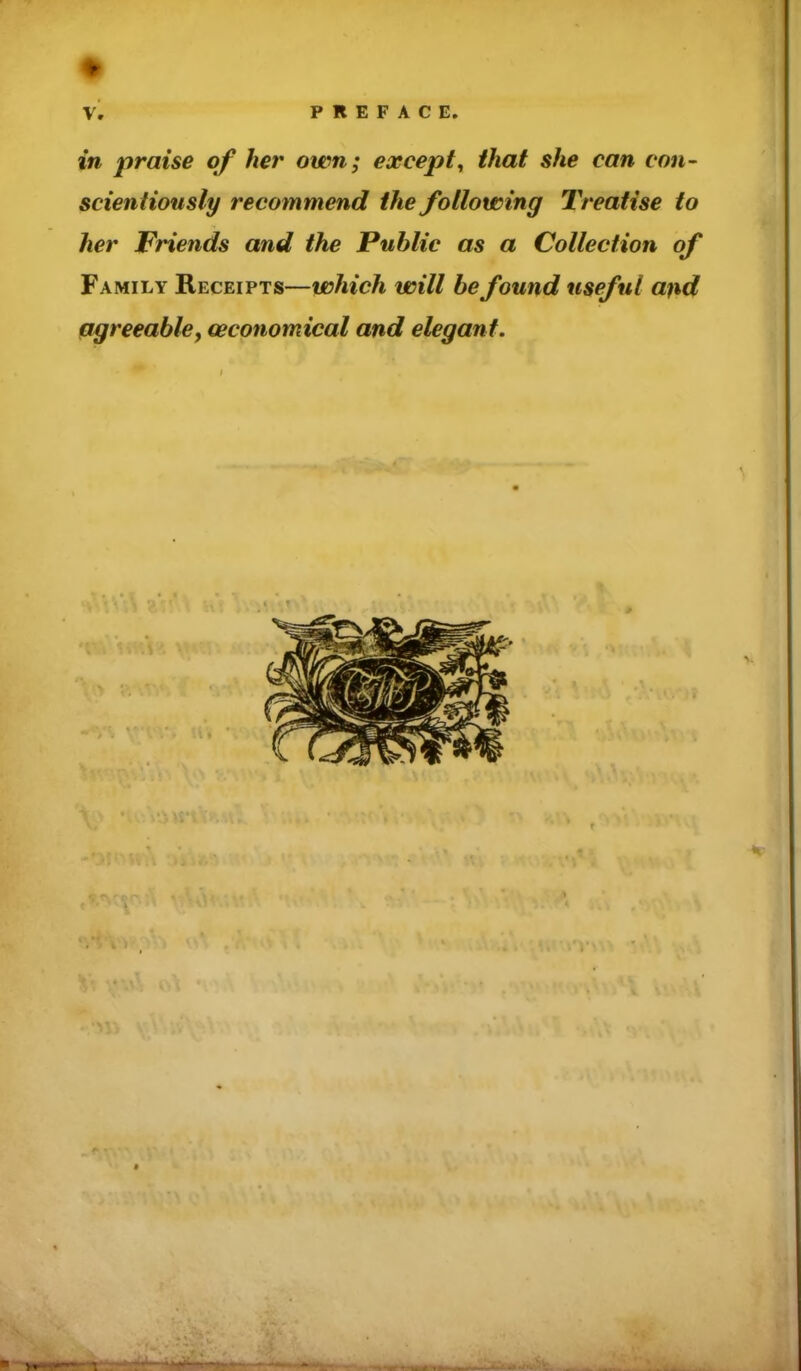 V. PREFACE.
in praise of her own; except, that she can con-
scientiously recommend the following Treatise to
her Friends and the Public as a Collection of
FAMILY RECEIPTS—which will be found useful and
agreeable, œconomical and elegant.